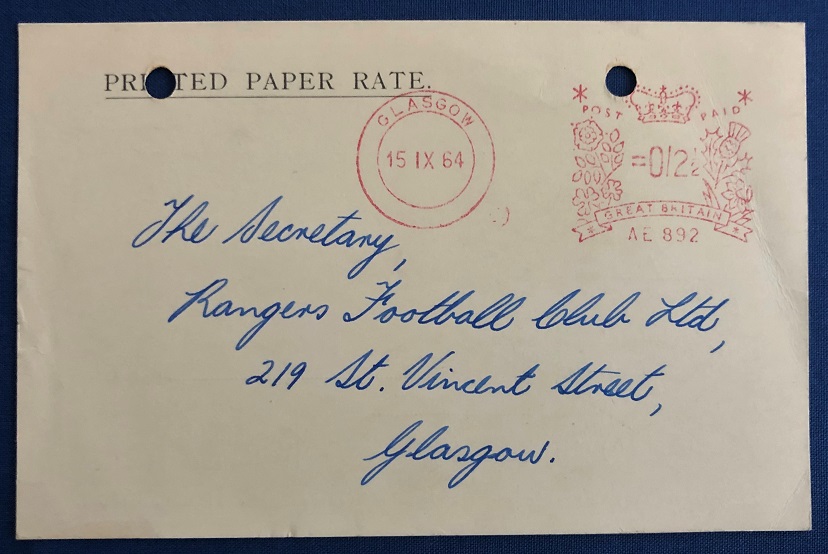 PRINTED PAPER RATE.
GLASGOW
15 IX 64
POST PAID
=0/2½
GREAT BRITAIN
AE 892
The Secretary,
Rangers Football Club Ltd,
219 St. Vincent Street,
Glasgow.